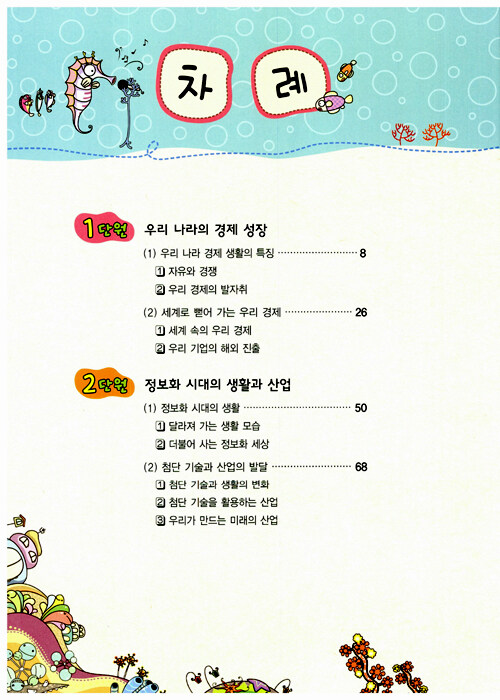 차례
1단원 우리 나라의 경제 성장
(1) 우리 나라 경제 생활의 특징 ························ 8
1 자유와 경쟁
2 우리 경제의 발자취
(2) 세계로 뻗어 가는 우리 경제 ···················· 26
1 세계 속의 우리 경제
2 우리 기업의 해외 진출
2단원 정보화 시대의 생활과 산업
(1) 정보화 시대의 생활 ································ 50
1 달라져 가는 생활 모습
2 더불어 사는 정보화 세상
(2) 첨단 기술과 산업의 발달 ························ 68
1 첨단 기술과 생활의 변화
2 첨단 기술을 활용하는 산업
3 우리가 만드는 미래의 산업